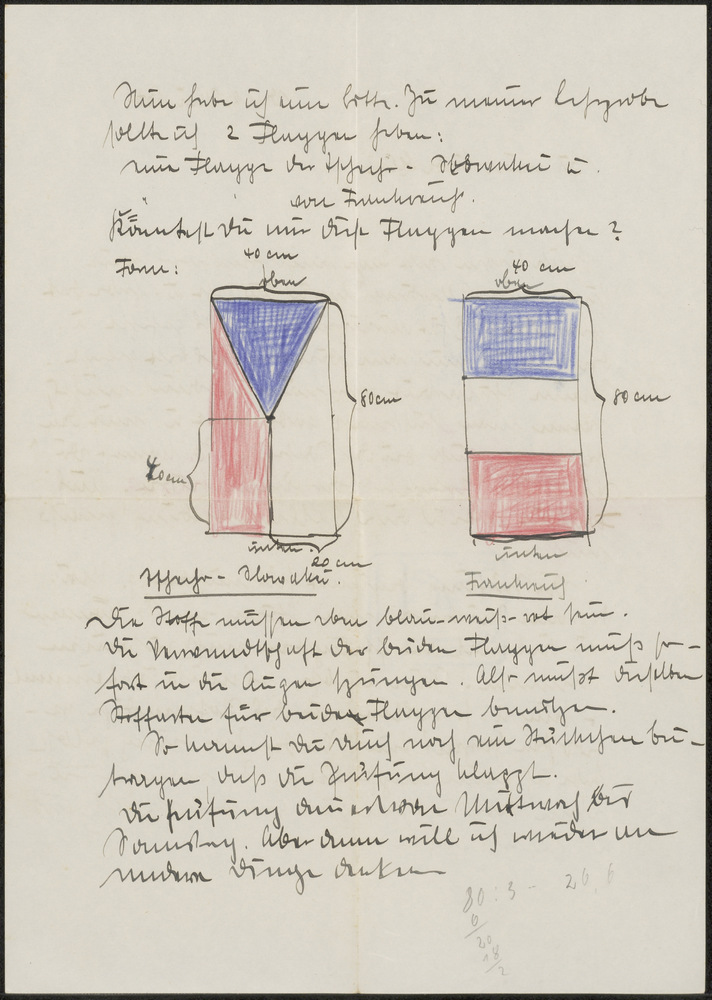 Nun habe ich eine Bitte. Zu meiner Lehrprobe
sollte ich 2 Flaggen haben:
eine Flagge der Tschecho-Slowakei u.
" von Frankreich.
Könntest Du mir diese Flaggen machen?
Form:
40 cm
oben
40 cm
oben
80 cm
80 cm
40 cm
unten.
20 cm
unten
Tschecho-Slowakei.
Frankreich
Die Stoffe müssen eben blau-weiß-rot sein.
Die Verwandtschaft der beiden Flaggen muß so-
fort in die Augen springen. Also mußt dieselben
Stoffarten für beide Flaggen benutzen.
So kannst Du auch noch ein Stückchen bei-
tragen daß die Prüfung klappt.
Die Prüfung dauert von Mittwoch bis
Samstag. Aber dann will ich wieder an
andere Dinge denken
80 : 3 - 26, 6
6
20
18
2